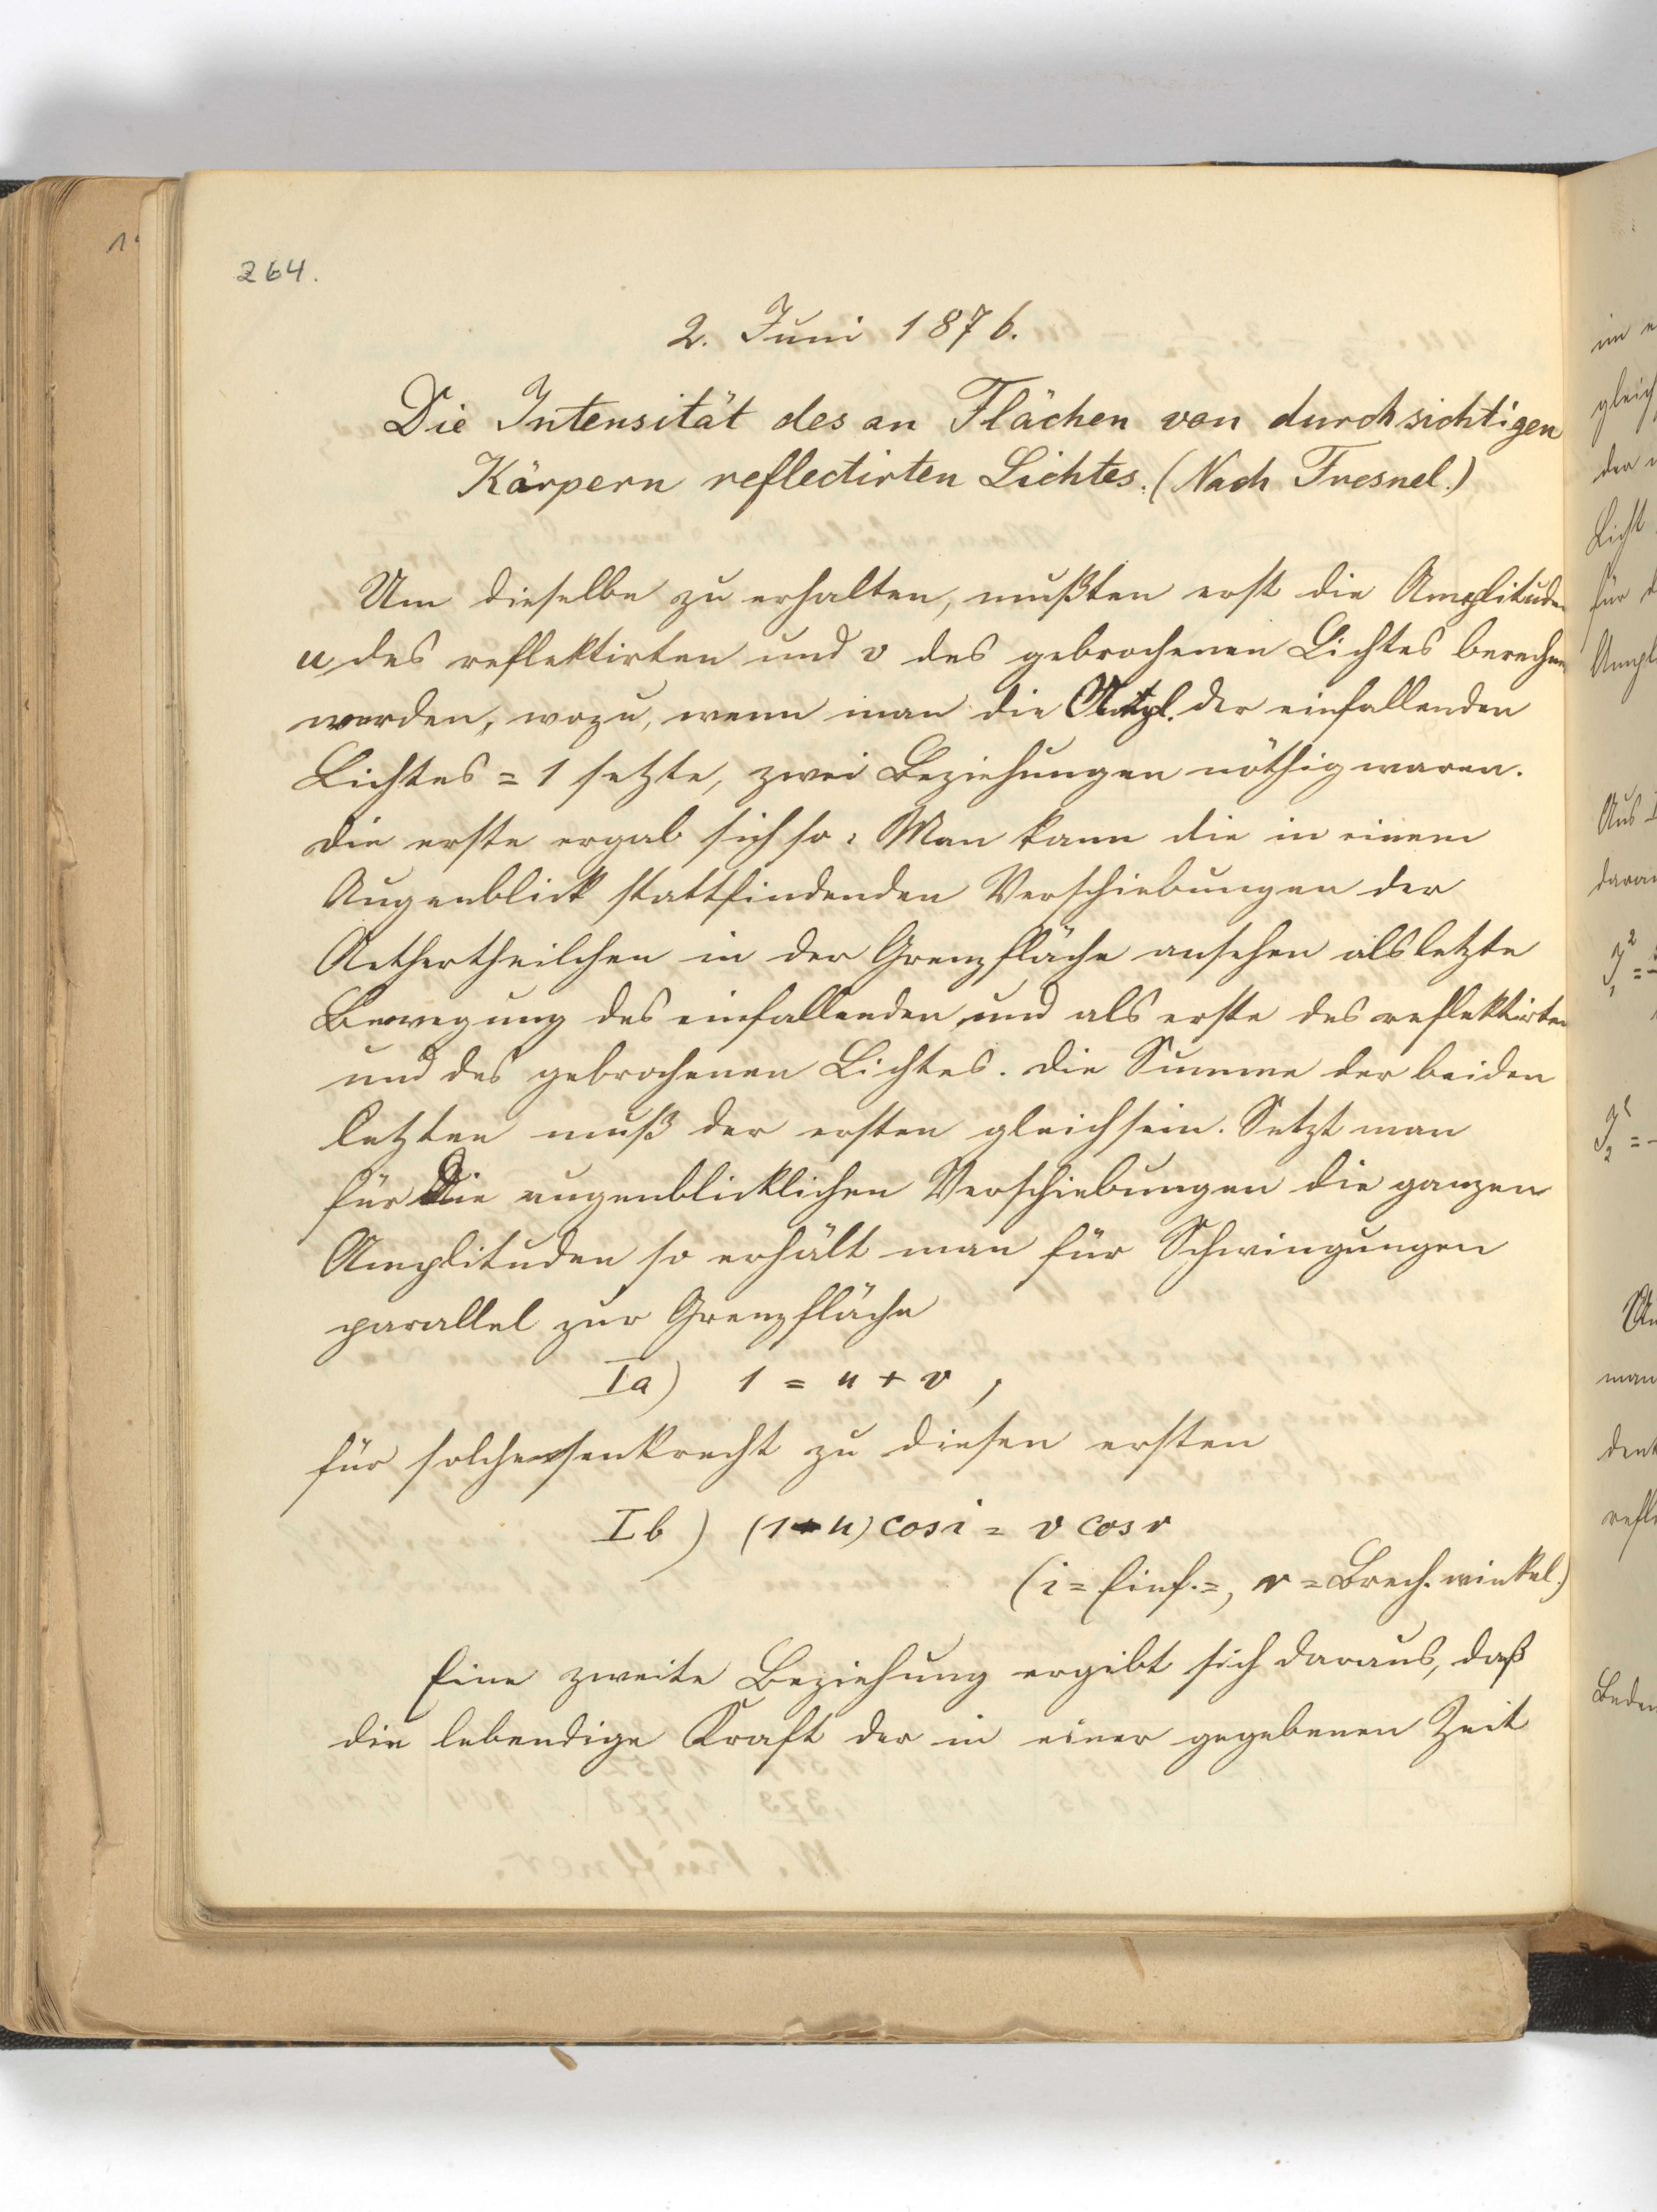 264.
2. Juni 1876.
Die Intensität des an Flächen von durchsichtigen
Körpern reflectirten Lichtes. (Nach Fresnel.)
Um dieselbe zu erhalten, mußten erst die Amplituden
u des reflektirten und v des gebrochenen Lichtes berechnet
werden, wozu, wenn man die Ampl. der einfallenden
Lichtes = 1 setzte, zwei Beziehungen nöthig waren.
Die erste ergab sich so: Man kann die in einem
Augenblick stattfindenden Verschiebungen der
Aethertheilchen in der Grenzfläche ansehen als letzte
Bewegung des einfallenden und als erste des reflektirten
und des gebrochenen Lichtes. Die Summe der beiden
letzten muß der ersten gleich sein. Setzt man
für die augenblicklichen Verschiebungen die ganzen
Amplituden so erhält man für Schwingungen
parallel zur Grenzfläche
Ia) 1 = u + v,
für solche senkrecht zu diesen ersten
Ib) (1+u) cos i = v cos r
(i = Einf.=, r = Brech. winkel.)
Eine zweite Beziehung ergibt sich daraus, daß
die lebendige Kraft der in einer gegebenen Zeit